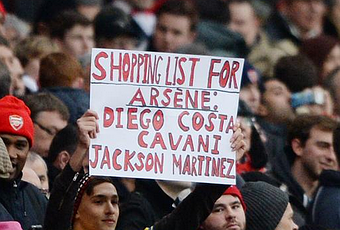 SHOPPING LIST FOR
ARSÈNE:
DIEGO COSTA
CAVANI
JACKSON MARTINEZ